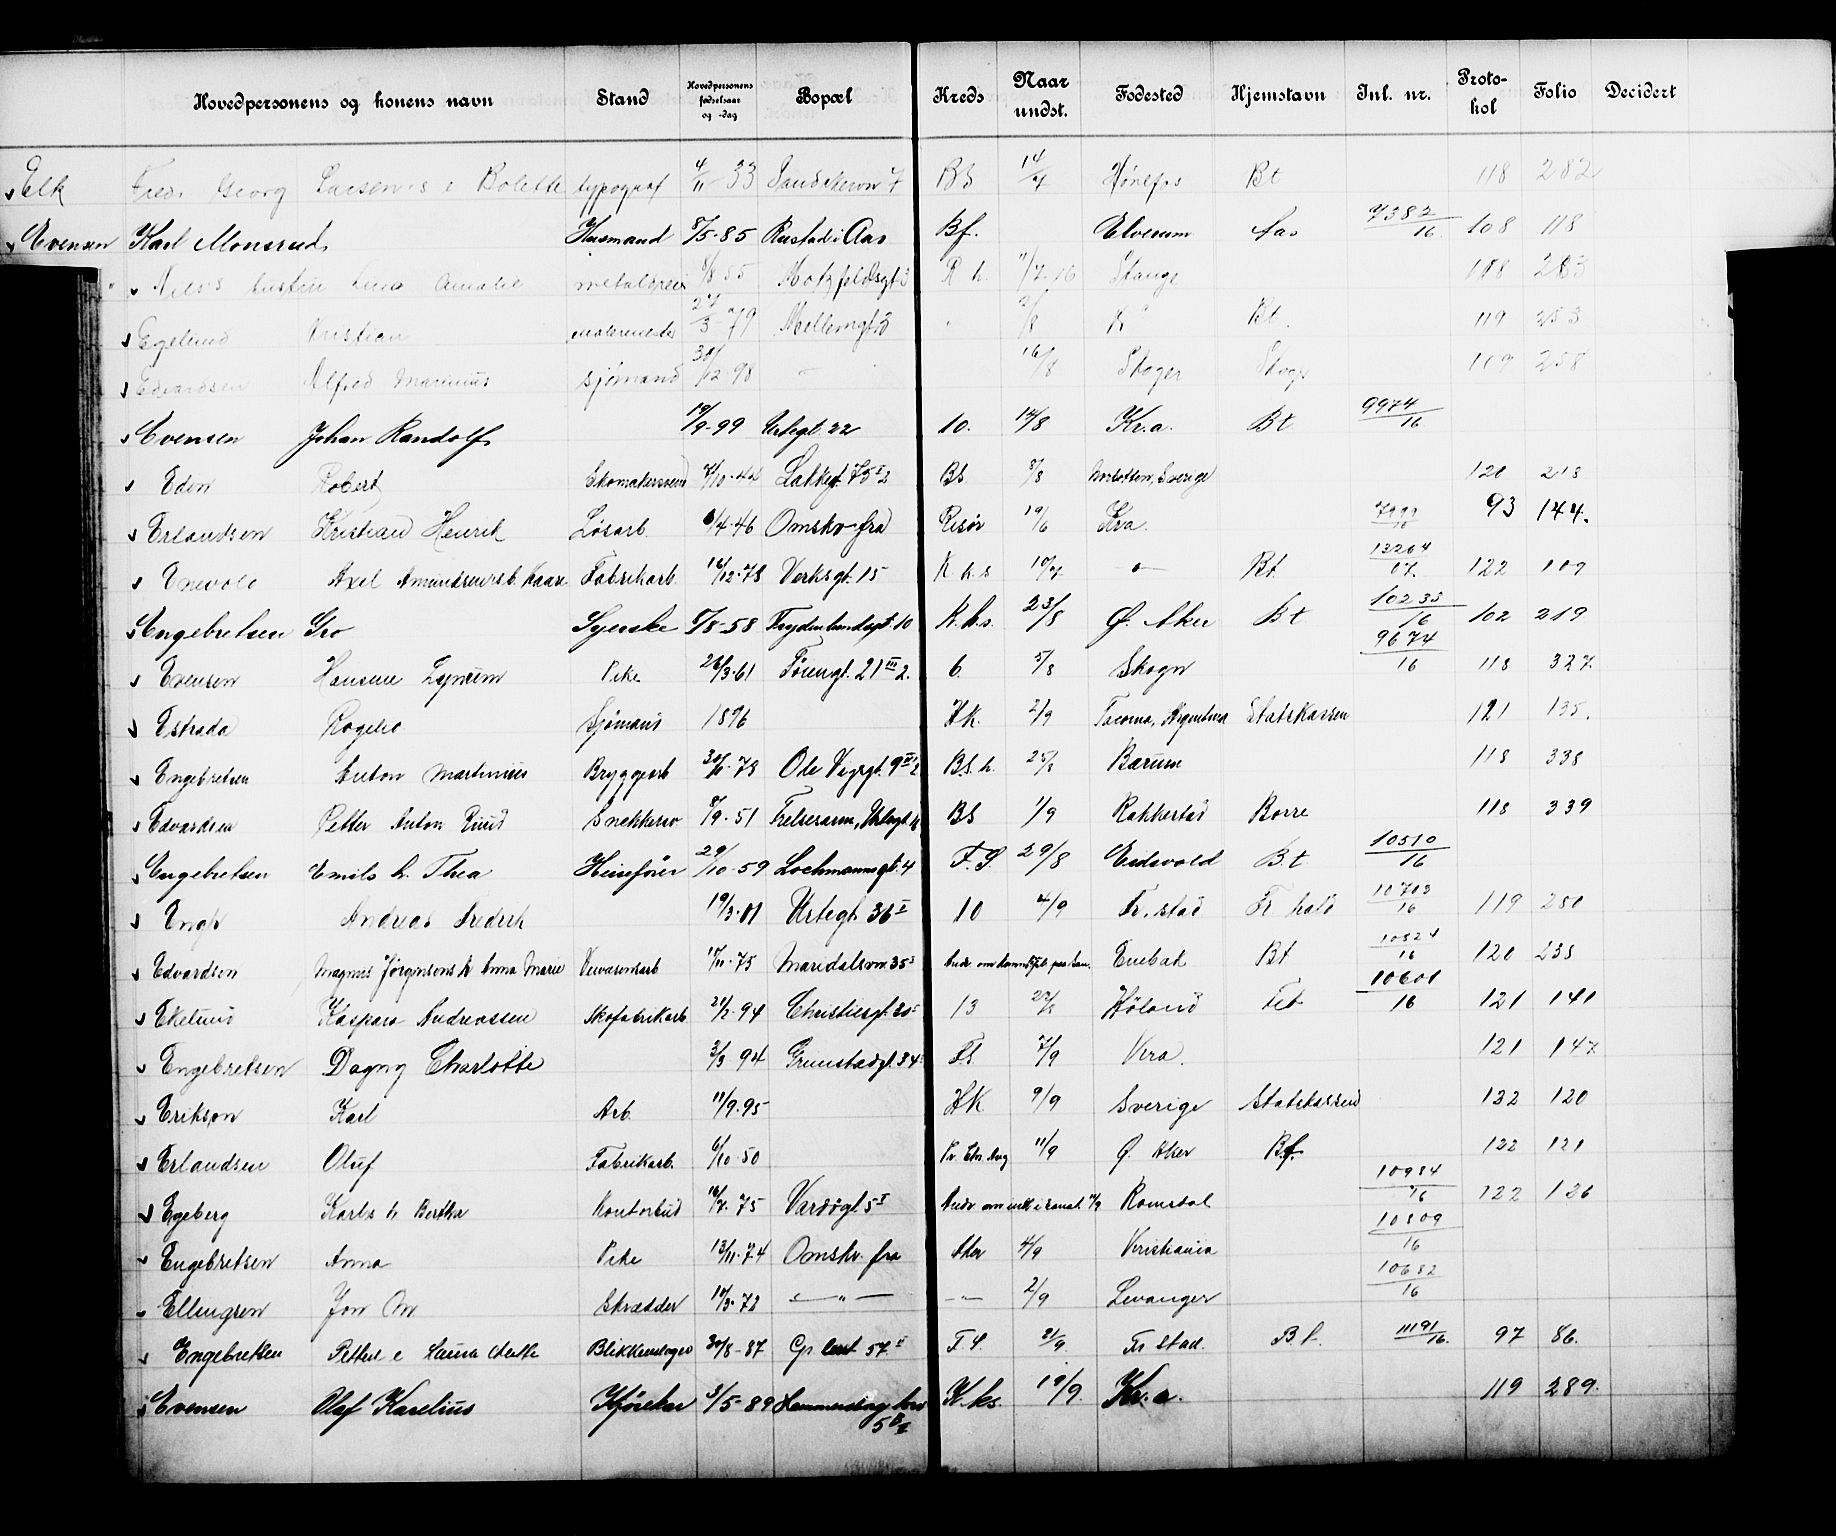 Hovedpersonens og konens navn Stand Hovedpersonens fødselsaar og -dag Bopæl Kreds Naar undst. Fødested Hjemstavn Inl. nr. Protokol Folio Decidert
Elk Georg Bolette typograf 4/11 33 7 BS 14/7 Hønefos Bt 118 282
Evensen Karl Monsrud Husmand 8/5-85 Rustad i Aas Bf. Elverum Aas 7382/16 108 118
Amalie 8/8 55 Motzfeldtsgt 3 K h. 11/7-16 Stange 118 283
Egelund Kristian 27/3 79 Mellemgt 3 2/8 K Bt. 119 253
Edvardsen Alfred Marinius sjømand 30/12-98 16/8 Skoger Skoger 119 258
Evensen Johan Randolf 19/9-99 Urtegt. 22 10. 14/8 Kr.a. Bt 9974/16
Eden Robert Skomakersvend 4/10-44 Lakkegt. 75 I 2 BS. 8/8 Norbotten, Sverige 120 218
Erlandsen Kristian Henrik Løsarb. 6/4-46 Omskr fra Risør 19/6 Kra. 7999/16 93 144.
Enevold Axel Kaare Fabrikarb. 16/12-78 Verksgt. 15 K. k. s 10/7 -"- Bt. 13264/17. 122 109
Engebretsen Gro Syerske 5/8-58 Frydenlundsgt. 10 K.k.s. 23/8 Ø. Aker Bt 10235/16 102 219
Evensen Hansine Pike 26/3-61 Tøiengt. 21 III 2. 6. 5/8 Skogn 9674/16 118 327
Estrada Rogelio Sjømand 1896 HK. 2/9 Tacoma, Argentina Statskassen 121 135.
Engebretsen Anton Martinius Bryggearb 30/11-78 Ole Vigsgt. 9 III 2 BS. h. 25/8 Bærum 118 338
Edvardsen Petter Anton Snekkersv 8/9-51 Frelserarm, Urtegt. BS 1/9 Rakkestad Borre 118 339
Engebretsen Emils h. Thea Heisefører 29/10-59 Lochmannsgt. 4 F.S. 29/8 Eidsvold B.t. 10510/16
Engh Andreas Fredrik 19/3-01 Urtegt. 36 I 10 4/9 Fr.stad Fr hald 10713/16 119 280
Edvardsen Magnus Jørgensens h Anna Marie 17/11-75 Maridalsvn 35 I Enebak Bt 10524/16 120 238
Ekelund Kaspara Andreassen Skofabrikarb 21/2-94 Christiesgt. 30 13 22/8 Høland Fet 10601/16 121 141
Engebretsen Dagny Charlotte 3/3 94 Grimstadgt. 34 F.S. 7/9 Kra. 121 147
Erikson Karl Arb. 11/9.95 HK 9/9 Sverige Statskassen 122 120
Erlandsen Oluf Fabrikarb. 6/10-50 11/9 Ø. Aker Bf. 122 121
Egeberg Karls h Bertha Kontorbud 16/7-75 Vardøgt. 5 I Romsdal 10984/16 122 126
Engebretsen Anna Pike 13/11-74 Omskr. fra Aker 4/9 Kristiania 10809/16
Ellingsen Jon On Skrædder 10/3-72 -"- -"- 2/9 Levanger 10682/16
Engebretsen Blikkenslager 30/8-87 Gr. lens 57 II F.S. 21/9. Fr stad. B.t. 11191/16 97 86.
Evensen Olaf Karelius Kjørekar 3/5-89 K.ks. 19/9. Kr.a. 119 289.